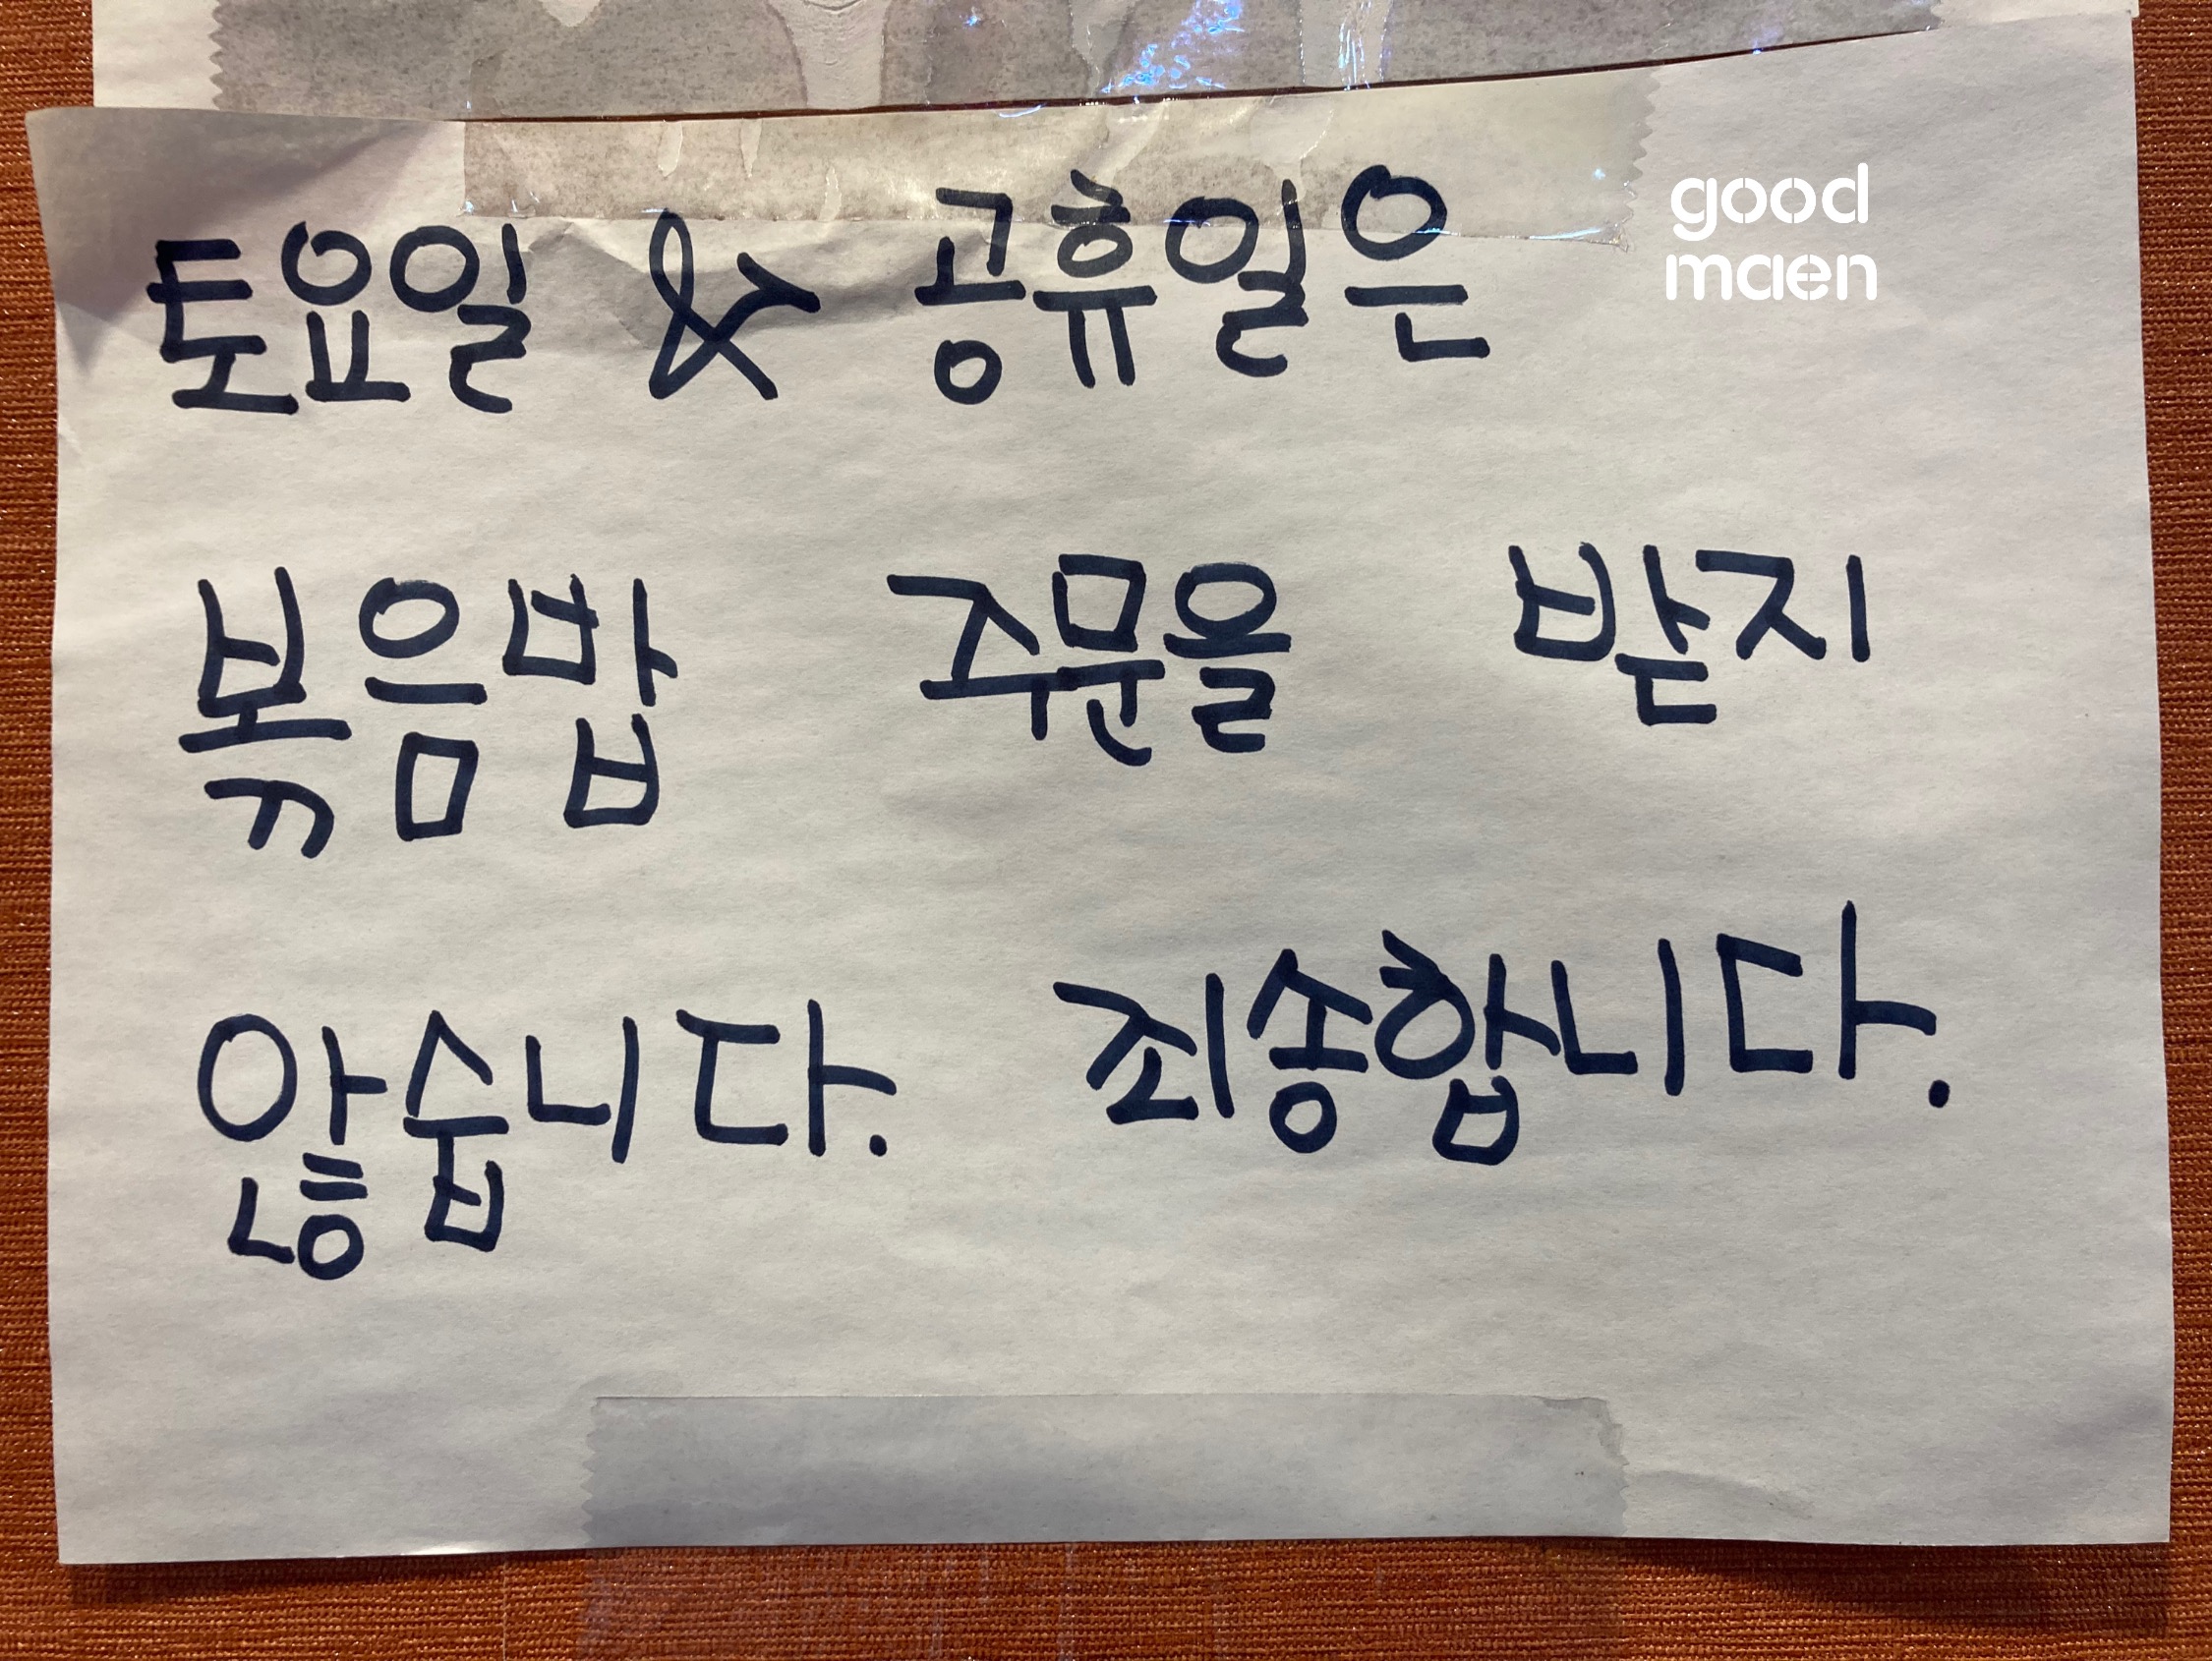 토요일 & 공휴일은
good
maen
볶음밥 주문을 받지
않습니다. 죄송합니다.